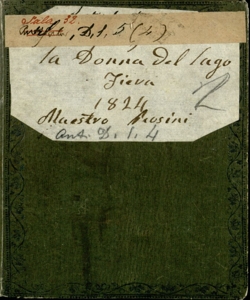 Sala 32
D.1.5 (4)
la Donna del Lago
Fieva
1824
Maestro Rosini
2
Ant. D. 1. 4